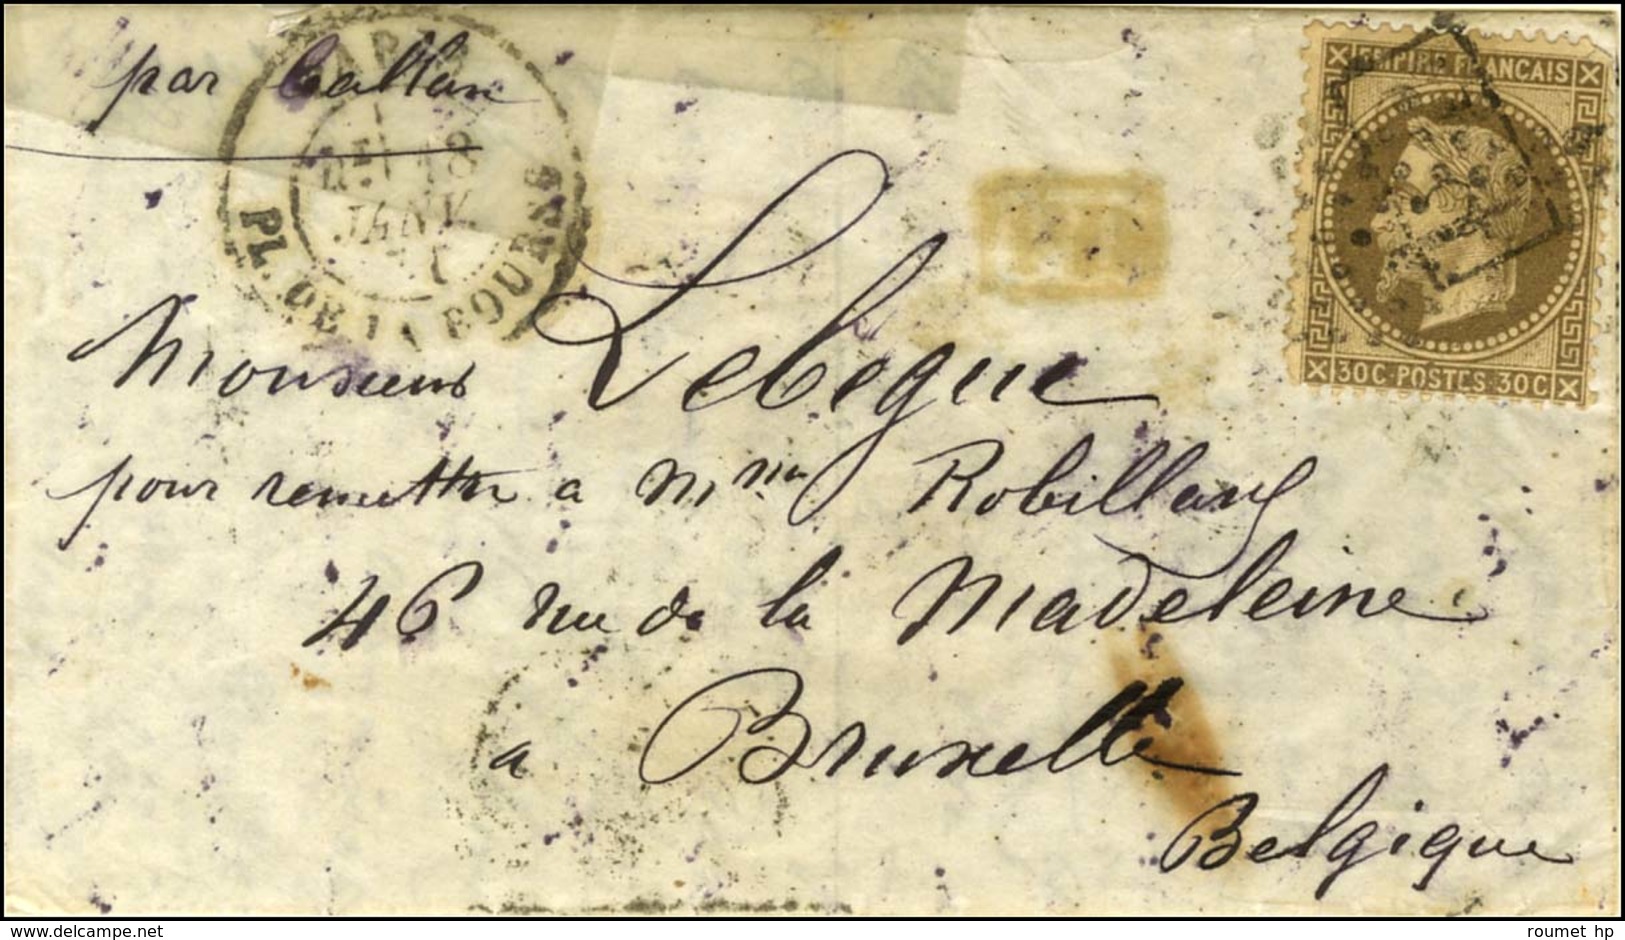 par ballon
PARIS
18
JANV.
71
PL. DE LA BOURSE
PD
EMPIRE FRANCAIS
30C POSTES 30C
Monsieur Lebegue
pour remettre a Mme Robillard
46 rue de la Madeleine
a Bruxelle
Belgique
www.delcampe.net
roumet hp